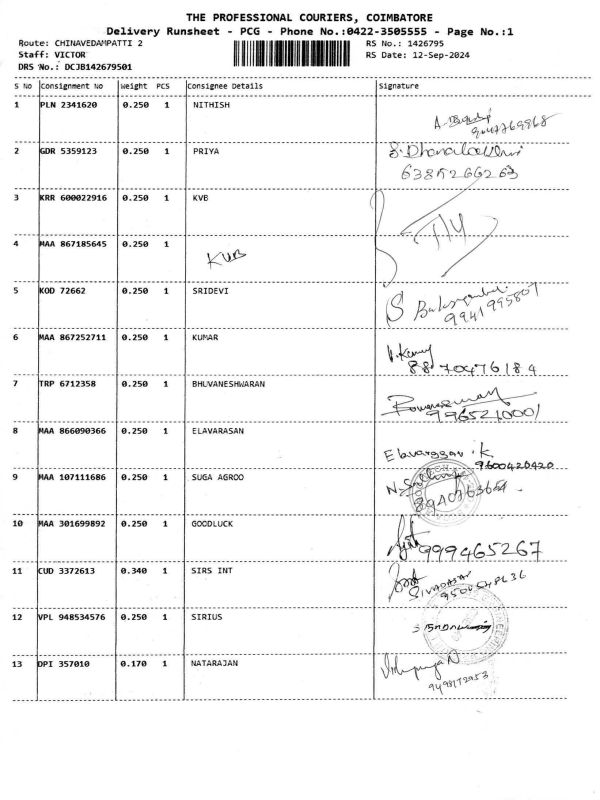 THE PROFESSIONAL COURIERS, COIMBATORE
Delivery Runsheet - PCG - Phone No.:0422-3505555 - Page No.:1
Route: CHINAVEDAMPATTI 2 RS No.: 1426795
Staff: VICTOR RS Date: 12-Sep-2024
DRS No.: DCJB142679501
S No Consignment No Weight PCS Consignee Details Signature
1 PLN 2341620 0.250 1 NITHISH
2 GDR 5359123 0.250 1 PRIYA
3 KRR 600022916 0.250 1 KVB
4 MAA 867185645 0.250 1 KVB
5 KOD 72662 0.250 1 SRIDEVI
9941995807
6 MAA 867252711 0.250 1 KUMAR
8870476184
7 TRP 6712358 0.250 1 BHUVANESHWARAN
9965210001
8 MAA 866090366 0.250 1 ELAVARASAN
Elavarasan .K
9600420420
9 MAA 107111686 0.250 1 SUGA AGROO
10 MAA 301699892 0.250 1 GOODLUCK
999465267
11 CUD 3372613 0.340 1 SIRS INT
12 VPL 948534576 0.250 1 SIRIUS
13 DPI 357010 0.170 1 NATARAJAN